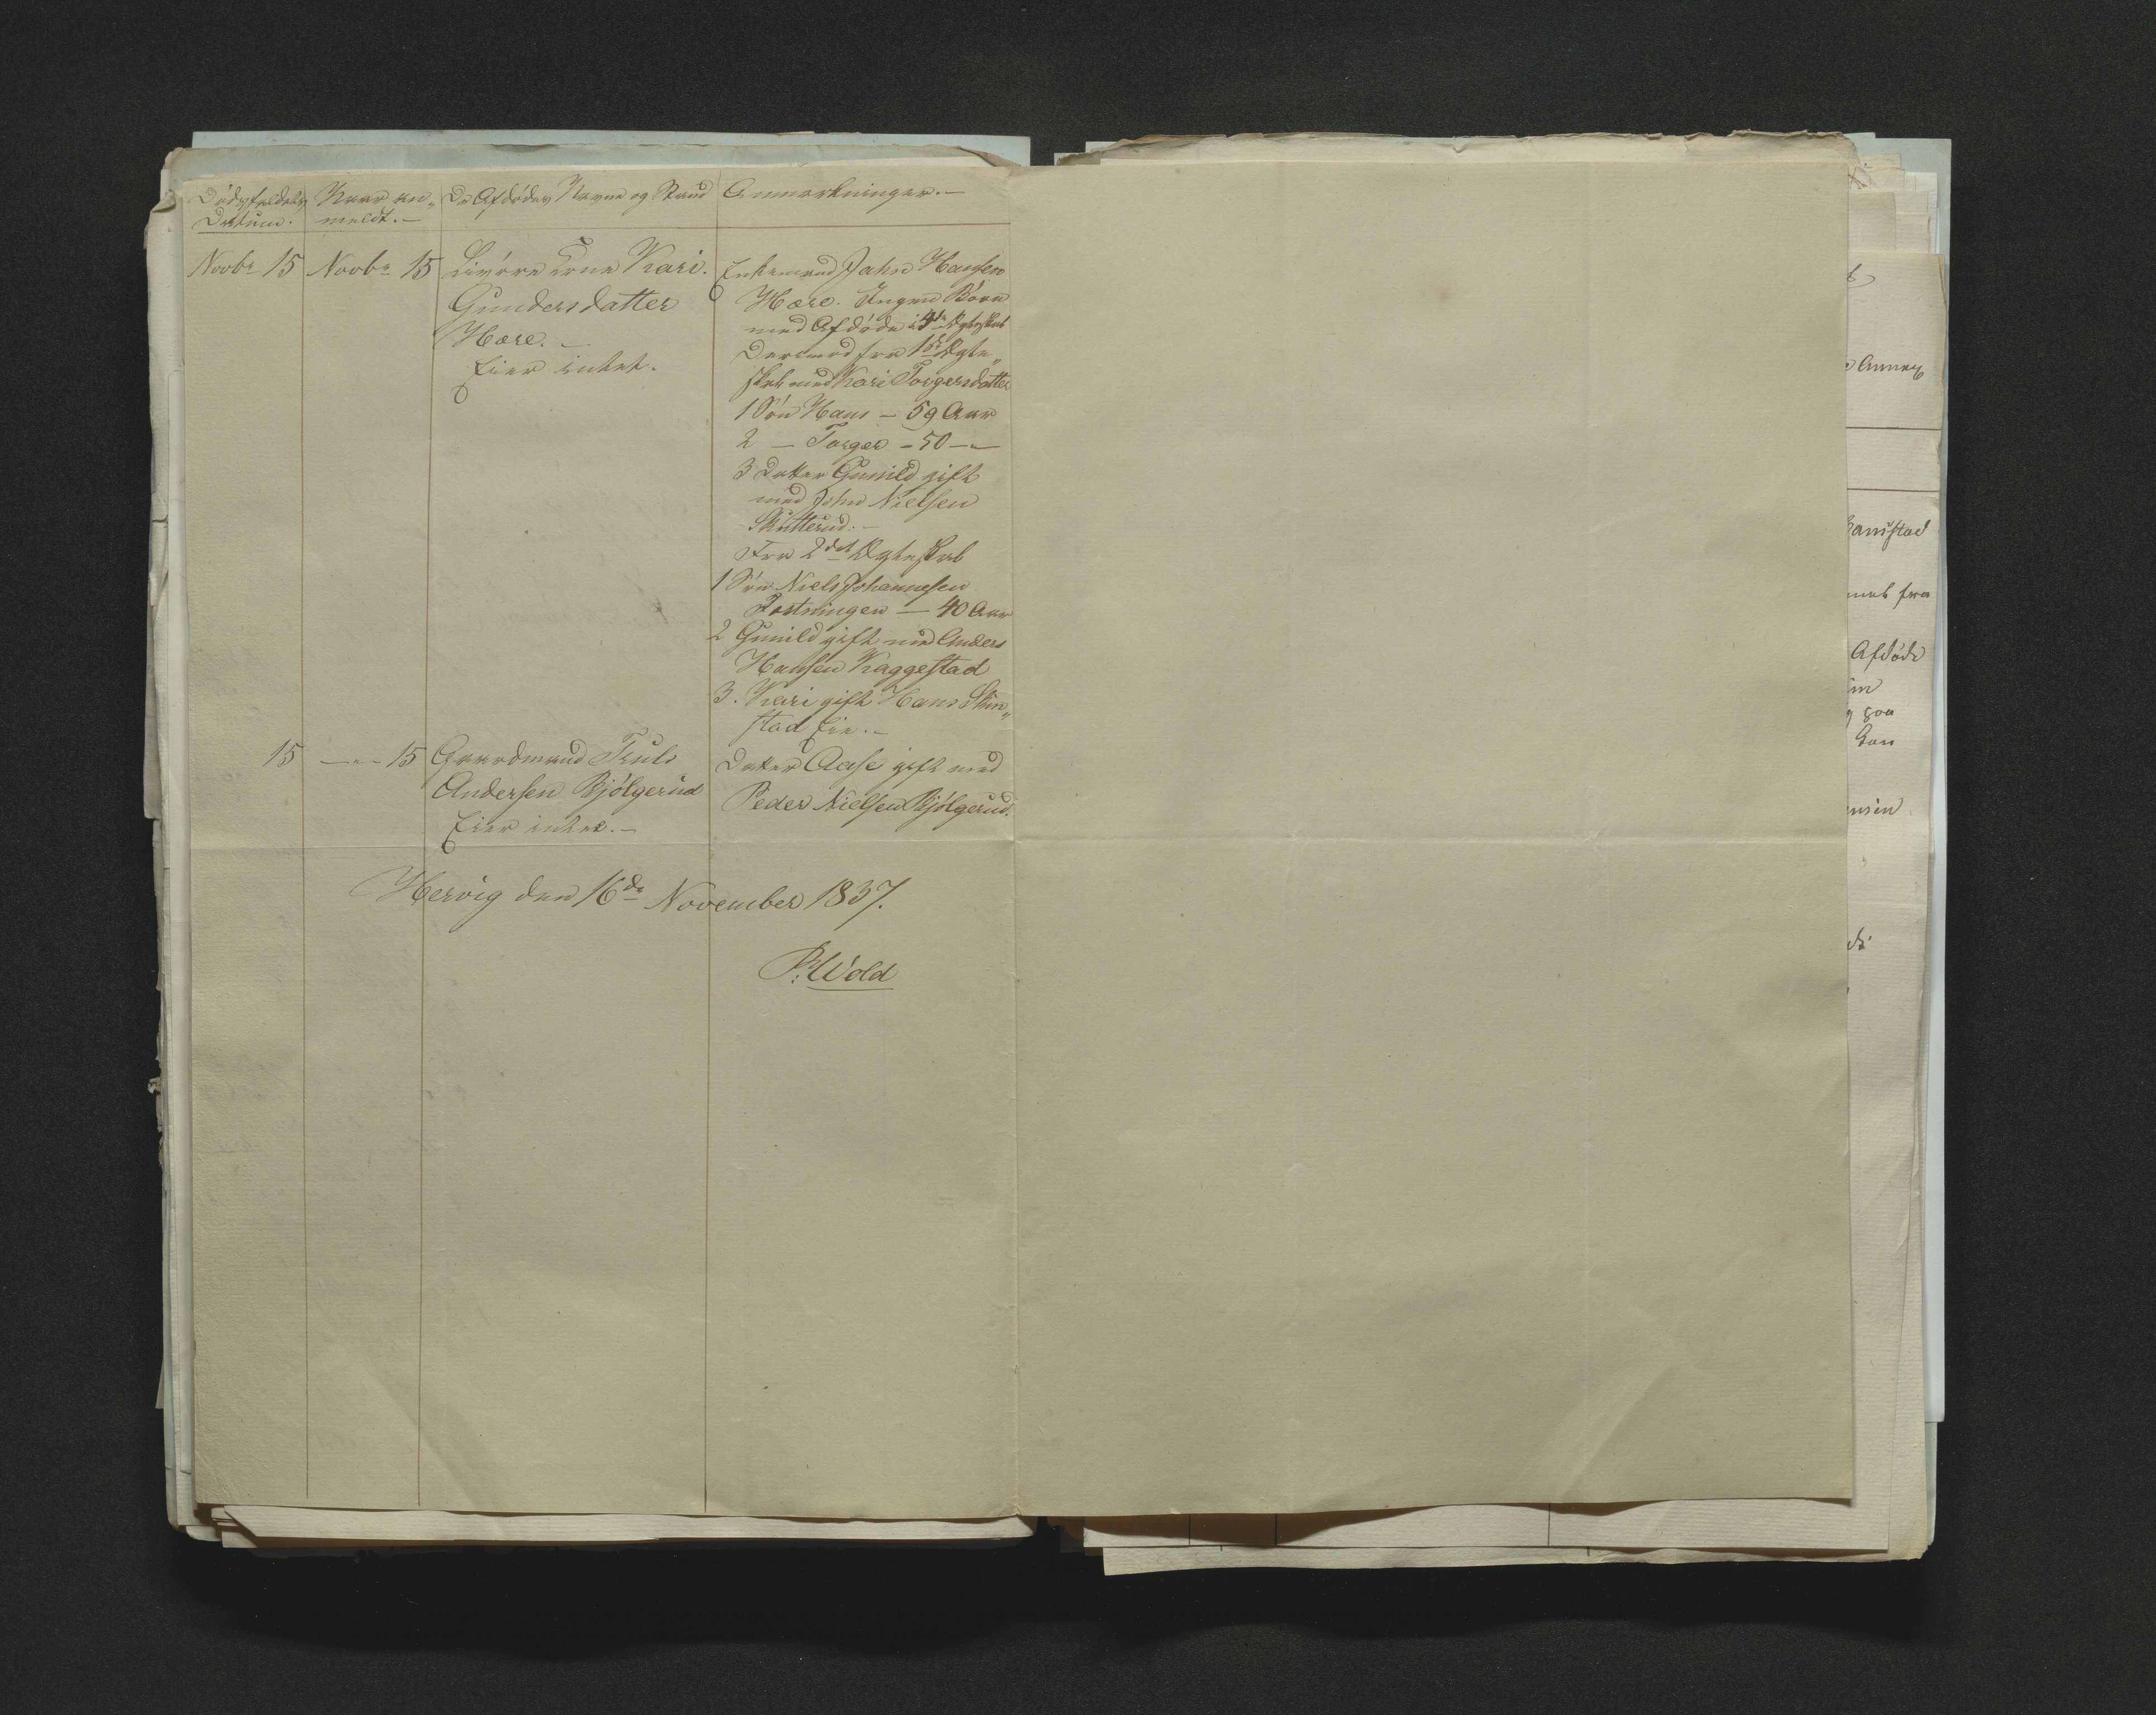 Dødsfaldets Datum.
Naar an„
meldt.—
De Afdødes Navne og Stand
Anmærkninger.—
Novbr 15
Novbr 15
Livøre Kone Kari
Gundersdatter
Hære.—
Eier intet.
Enkemand Jahn Hansen
Hære. Ingen Børn
med Afdøde i 4de Ægteskab
Derimod fra 1ste Ægte„
skab med Kari Torgersdatter
1 Søn Hans — 59 Aar
2 — Torger — 50 —„—
3 Datter Gunild gift
med John Nielsen
Skutterud.—
Fra 2det Ægteskab
1 Søn Niels Johannesen
— 40 Aar
2 Gunild gift med Anders
Hansen Kaggestad
3. Kari gift Hans Skin„
stad Eie.—
15
—„— 15
Gaardmand Truls
Andersen Bjølgerud
Eier intet.—
Datter Aase gift med
Peder Nielsen Bjølgerud.
Hervig den 16de November 1837.
P: Wold
Annex
Afdøde
paa